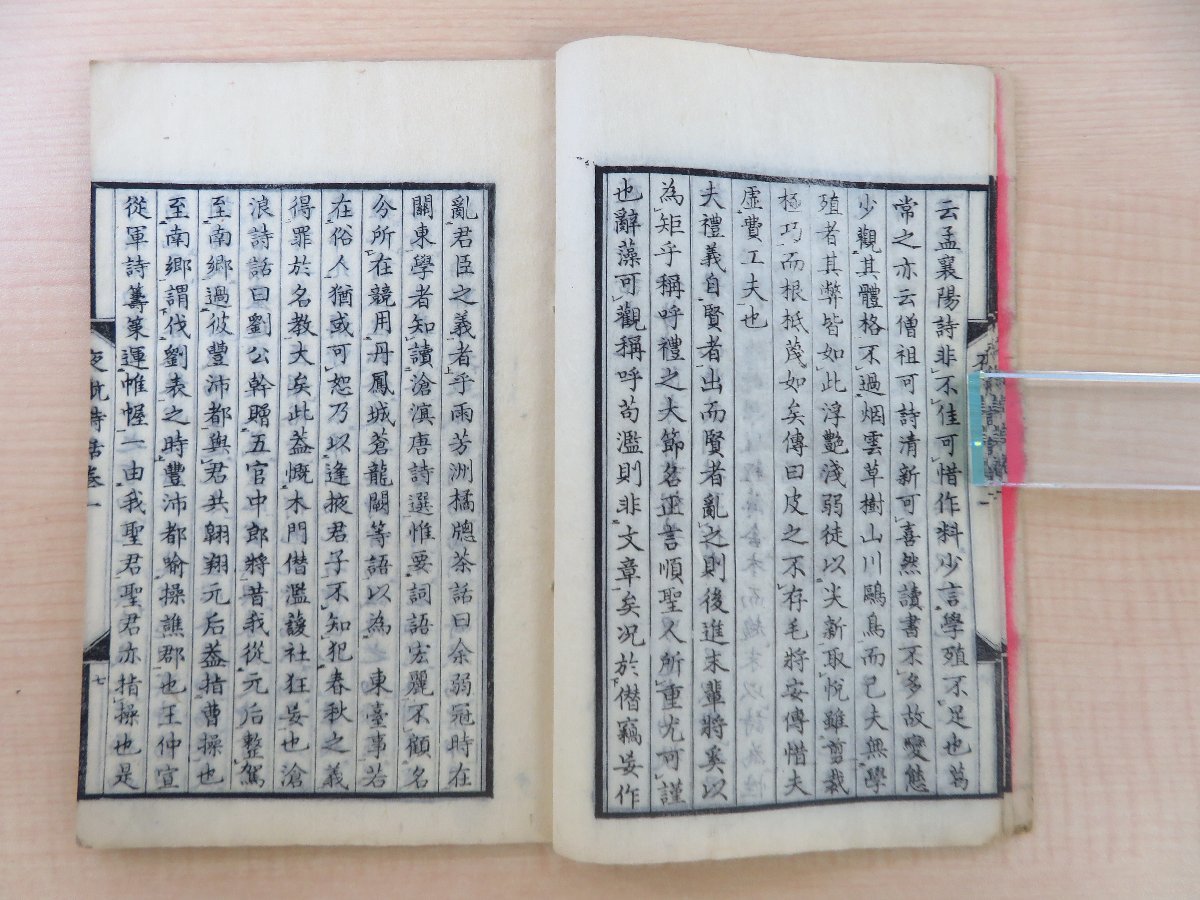 云孟襄陽詩非不佳可惜作料少言學殖不足也葛
常之亦云僧祖可詩清新可喜然讀書不多故變態
少觀其體格不過烟雲草樹山川鷗鳥而已夫無學
殖者其弊皆如此浮艷淺弱徒以尖新取悅雖剪裁
極巧而根柢茂如矣傳曰皮之不存毛將安傅惜夫
虛費工夫也
夫禮義自賢者出而賢者亂之則後進末輩將奚以
為矩乎稱呼禮之大節名正言順聖人所重尤可謹
也辭藻可觀稱呼苟濫則非文章矣况於僭竊妄作
亂君臣之義者乎雨芳洲橘牕茶話曰余弱冠時在
關東學者知讀滄溟唐詩選惟要詞語宏麗不顧名
今所在競用丹鳳城蒼龍闕等語以為東臺事若
在俗人猶或可恕乃以逢掖君子不知犯春秋之義
得罪於名教大矣此蓋慨木門僭濫護社狂妄也滄
浪詩話曰劉公幹贈五官中郎將昔我從元后整駕
至南鄉過彼豐沛都與君共翱翔元后蓋指曹操也
至南鄉謂伐劉表之時豐沛都喻操譙郡也王仲宣
從軍詩籌策運帷幄一由我聖君聖君亦指操也是
夜航詩話卷一
七